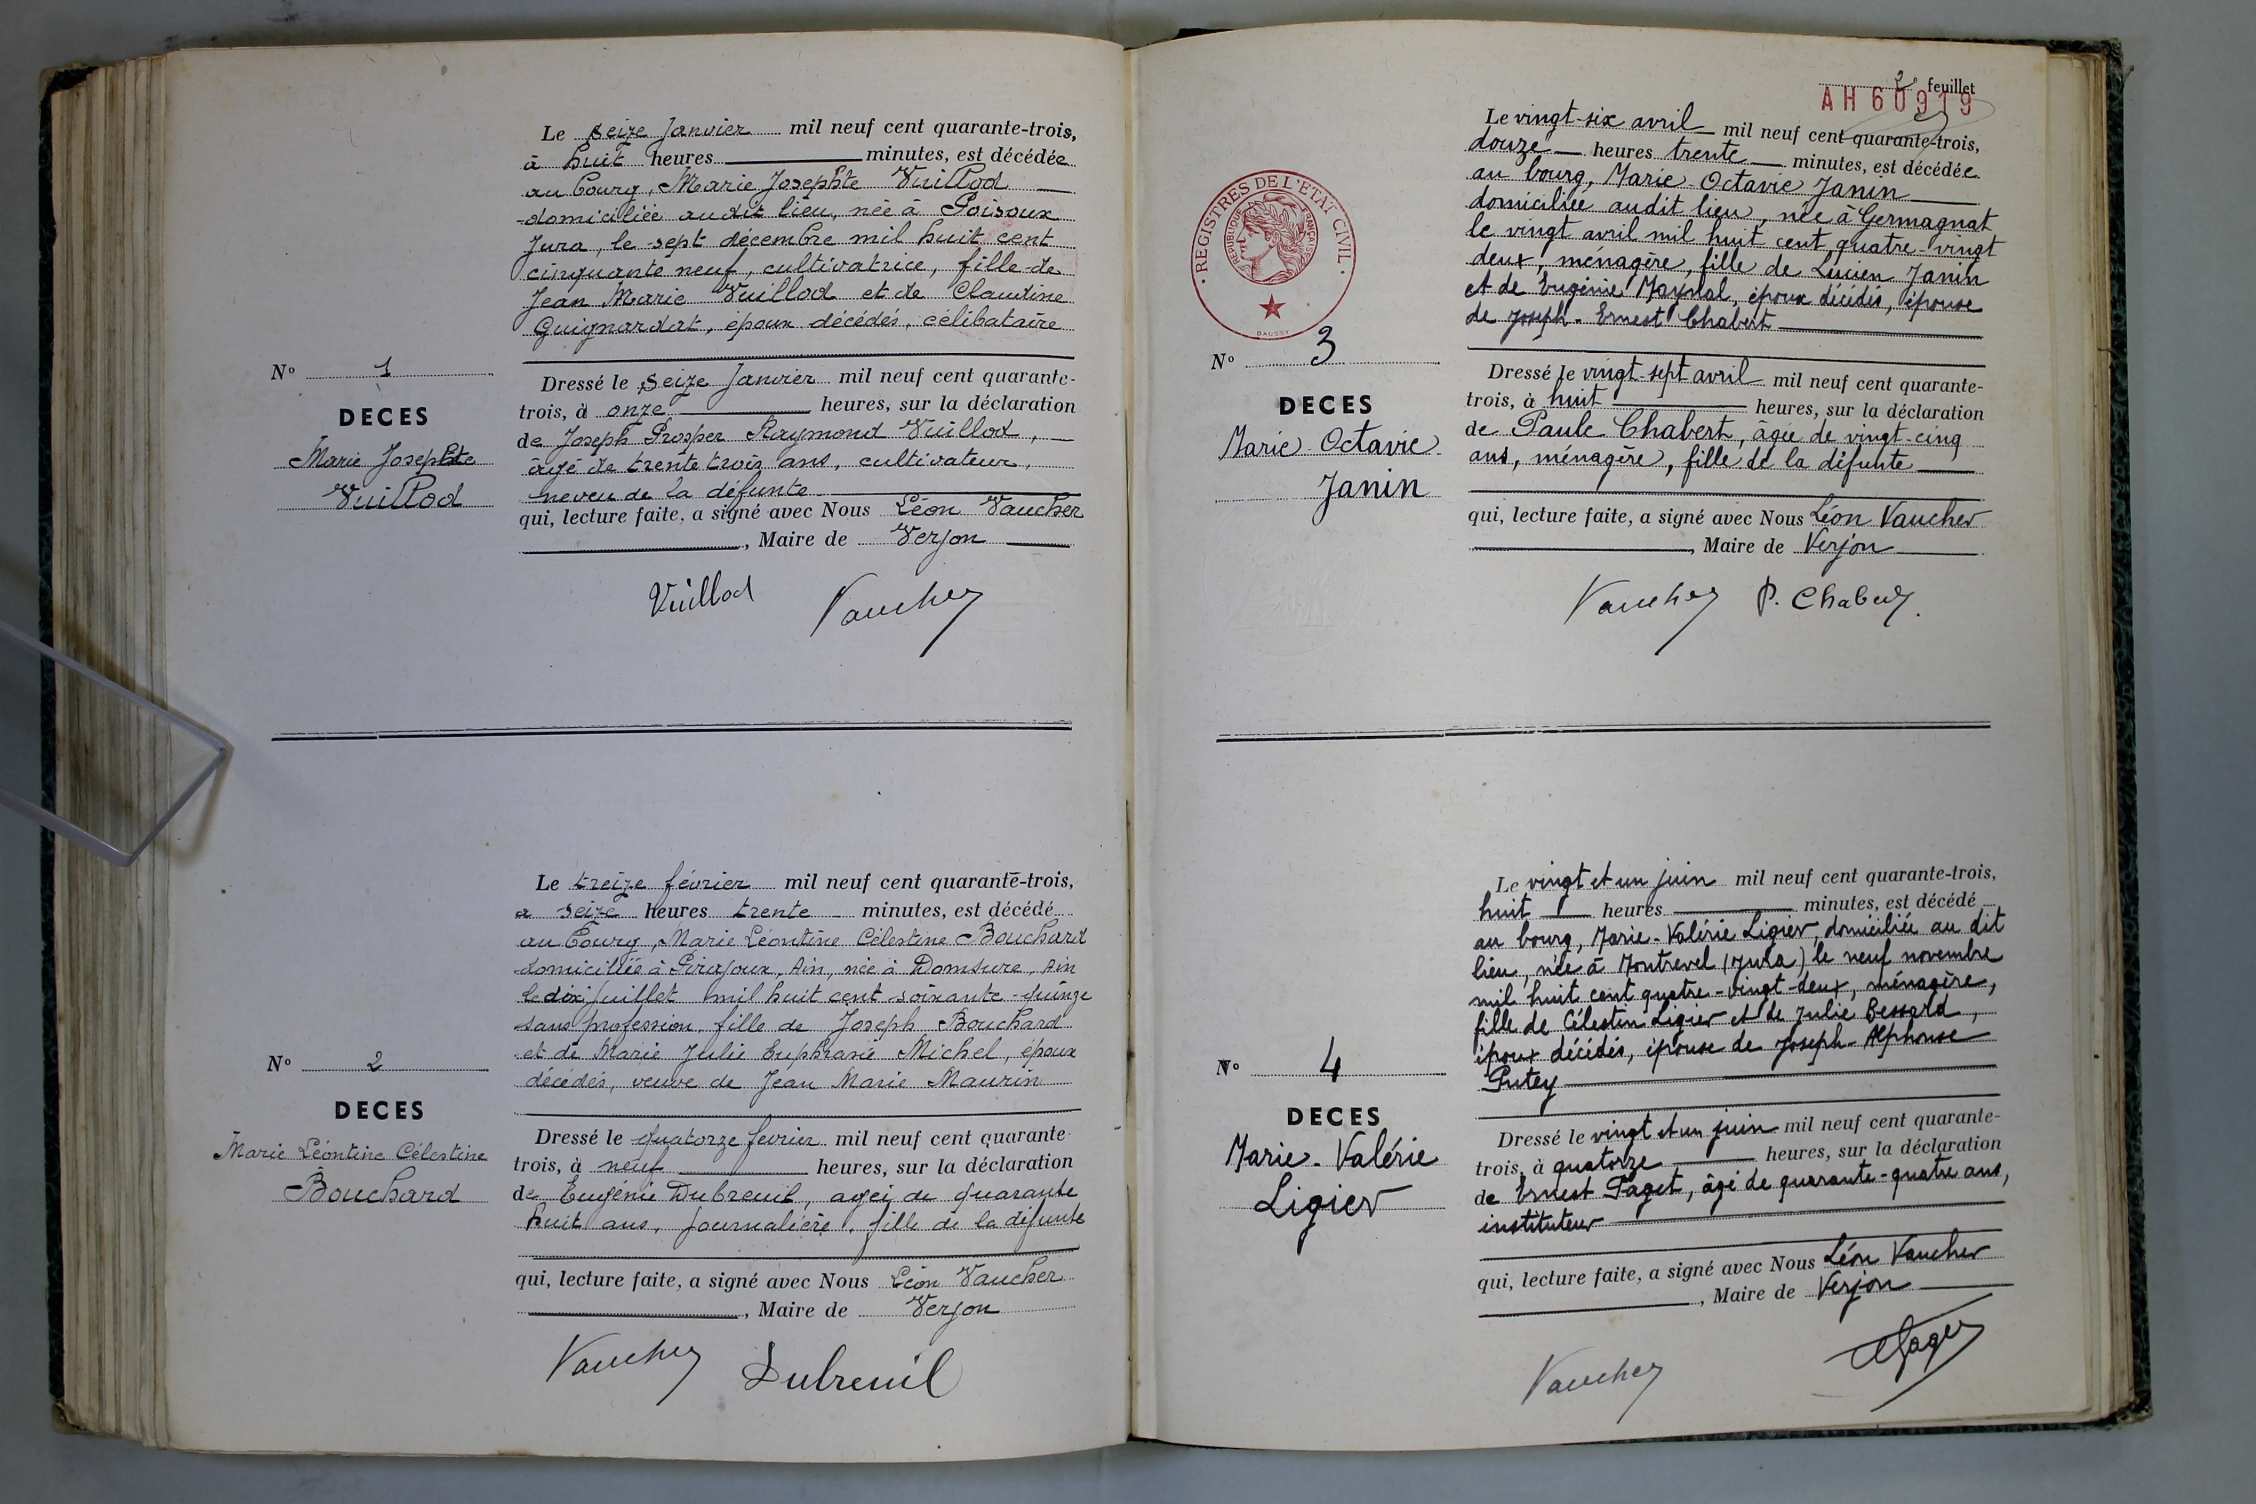 Le seize Janvier mil neuf cent quarante-trois,
à huit heures minutes, est décédée
au bourg, Marie Josephte Vuillod
domiciliée audit lieu, née à Poisoux
Jura, le sept décembre mil huit cent
cinquante neuf, cultivatrice, fille de
Jean Marie Vuillod et de Claudine
Guignardat, époux décédés, célibataire
N° 1
DECES
Marie Josephte
Vuillod
Dressé le seize Janvier mil neuf cent quarante-
trois, à onze heures, sur la déclaration
de Joseph Prosper Raymond Vuillod,
âgé de trente trois ans, cultivateur,
neveu de la défunte
qui, lecture faite, a signé avec Nous Léon Vaucher
, Maire de Verjon
Vuillod Vaucher
Le treize février mil neuf cent quarante-trois,
a seize heures trente minutes, est décédé
au Bourg, Marie Léontine Célestine Bouchard
domiciliée à Pirajoux, Ain, née à Domsure, Ain
le dix juillet mil huit cent soixante-quinze
sans profession, fille de Joseph Bouchard
et de Marie Julie Euphrasie Michel, époux
décédés, veuve de Jean Marie Maurin
N° 2
DECES
Marie Léontine Célestine
Bouchard
Dressé le quatorze fevrier mil neuf cent quarante
trois, à neuf heures, sur la déclaration
de Eugénie Dubreuil, agée de quarante
huit ans, journalière, fille de la défunte
qui, lecture faite, a signé avec Nous Léon Vaucher
, Maire de Verjon
Vaucher Dubreuil
2e feuillet
AH60919
Le vingt-six avril mil neuf cent quarante-trois,
douze heures trente minutes, est décédée
au bourg, Marie-Octavie Janin
domiciliée audit lieu, née à Germagnat
le vingt avril mil huit cent quatre-vingt
deux, ménagère, fille de Lucien Janin
et de Eugénie Maynal, époux décédés, épouse
de Joseph-Ernest Chabert
REGISTRES DE L'ETAT CIVIL
REPUBLIQUE FRANÇAISE
DAUSSY
N° 3
DECES
Marie Octavie
Janin
Dressé le vingt-sept avril mil neuf cent quarante-
trois, à huit heures, sur la déclaration
de Paule Chabert, âgée de vingt-cinq
ans, ménagère, fille de la défunte
qui, lecture faite, a signé avec Nous Léon Vaucher
, Maire de Verjon
Vaucher P. Chabert
Le vingt et un juin mil neuf cent quarante-trois,
huit heures minutes, est décédé
au bourg, Marie-Valérie Ligier, domiciliée au dit
lieu, née à Montrevel (Jura) le neuf novembre
mil huit cent quatre-vingt-deux, ménagère,
fille de Célestin Ligier et de Julie Bessard,
époux décédés, épouse de Joseph-Alphonse
Putey
N° 4
DECES
Marie-Valérie
Ligier
Dressé le vingt et un juin mil neuf cent quarante-
trois, à quatorze heures, sur la déclaration
de Ernest Paget, âgé de quarante-quatre ans,
instituteur
qui, lecture faite, a signé avec Nous Léon Vaucher
, Maire de Verjon
Vaucher